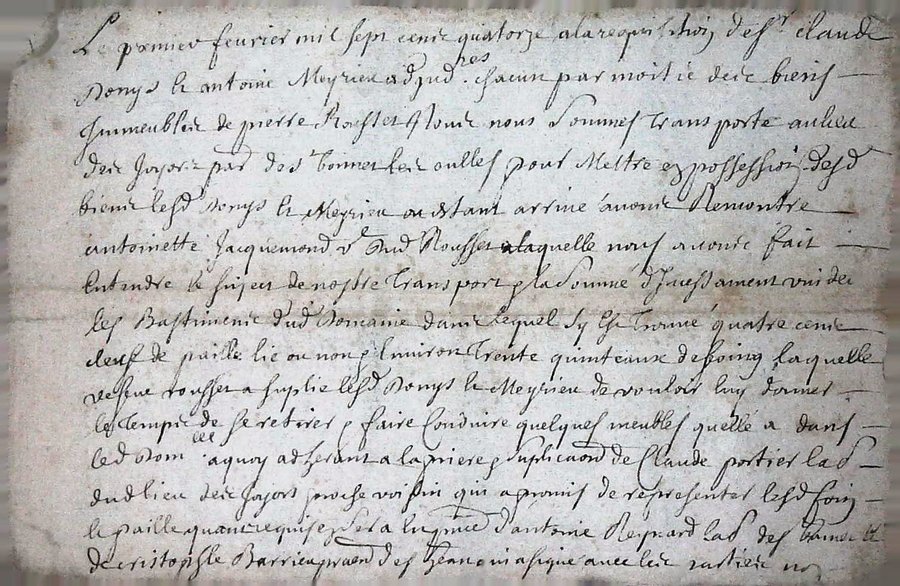 Le premier feurier mil sept cens quatorze a la requisition de sr claude
Donys et antoine Meyrieu adjud.res chacun par moitié des biens
Immeubles de pierre Rousset nous nous sommes transporté au lieu
des Jayots par des bonnet les oulles pour Mettre en possession desd
biens lesd Donys et Meyrieu ou estant arriué auons Rencontre
antoinette Jacquemond ve dud Rousset a laquelle nous auons fait
Entendre le sujet de nostre transport et la sommé d'Incessament vuider
les Bastimens dud Domaine dans lequel sy est trouué quatre cens
de paille lié ou non et Enuiron trente quinteaux de foing laquelle
vefue rousset a suplié lesd Donys et Meyrieu de vouloir luy donner
le temps de se retirer et faire Conduire quelques meubles quelle a dans
led Dom a quoy adherant a la priere et suplicaon de Claude portier lab
dud lieu des Jayots proche voisin qui a promis de representer lesd foin
et paille quand requis sera En pnce d'antoine Reynard lab des bonnet et
de cristophle Barrieu des Jean qui a signé auec les parties